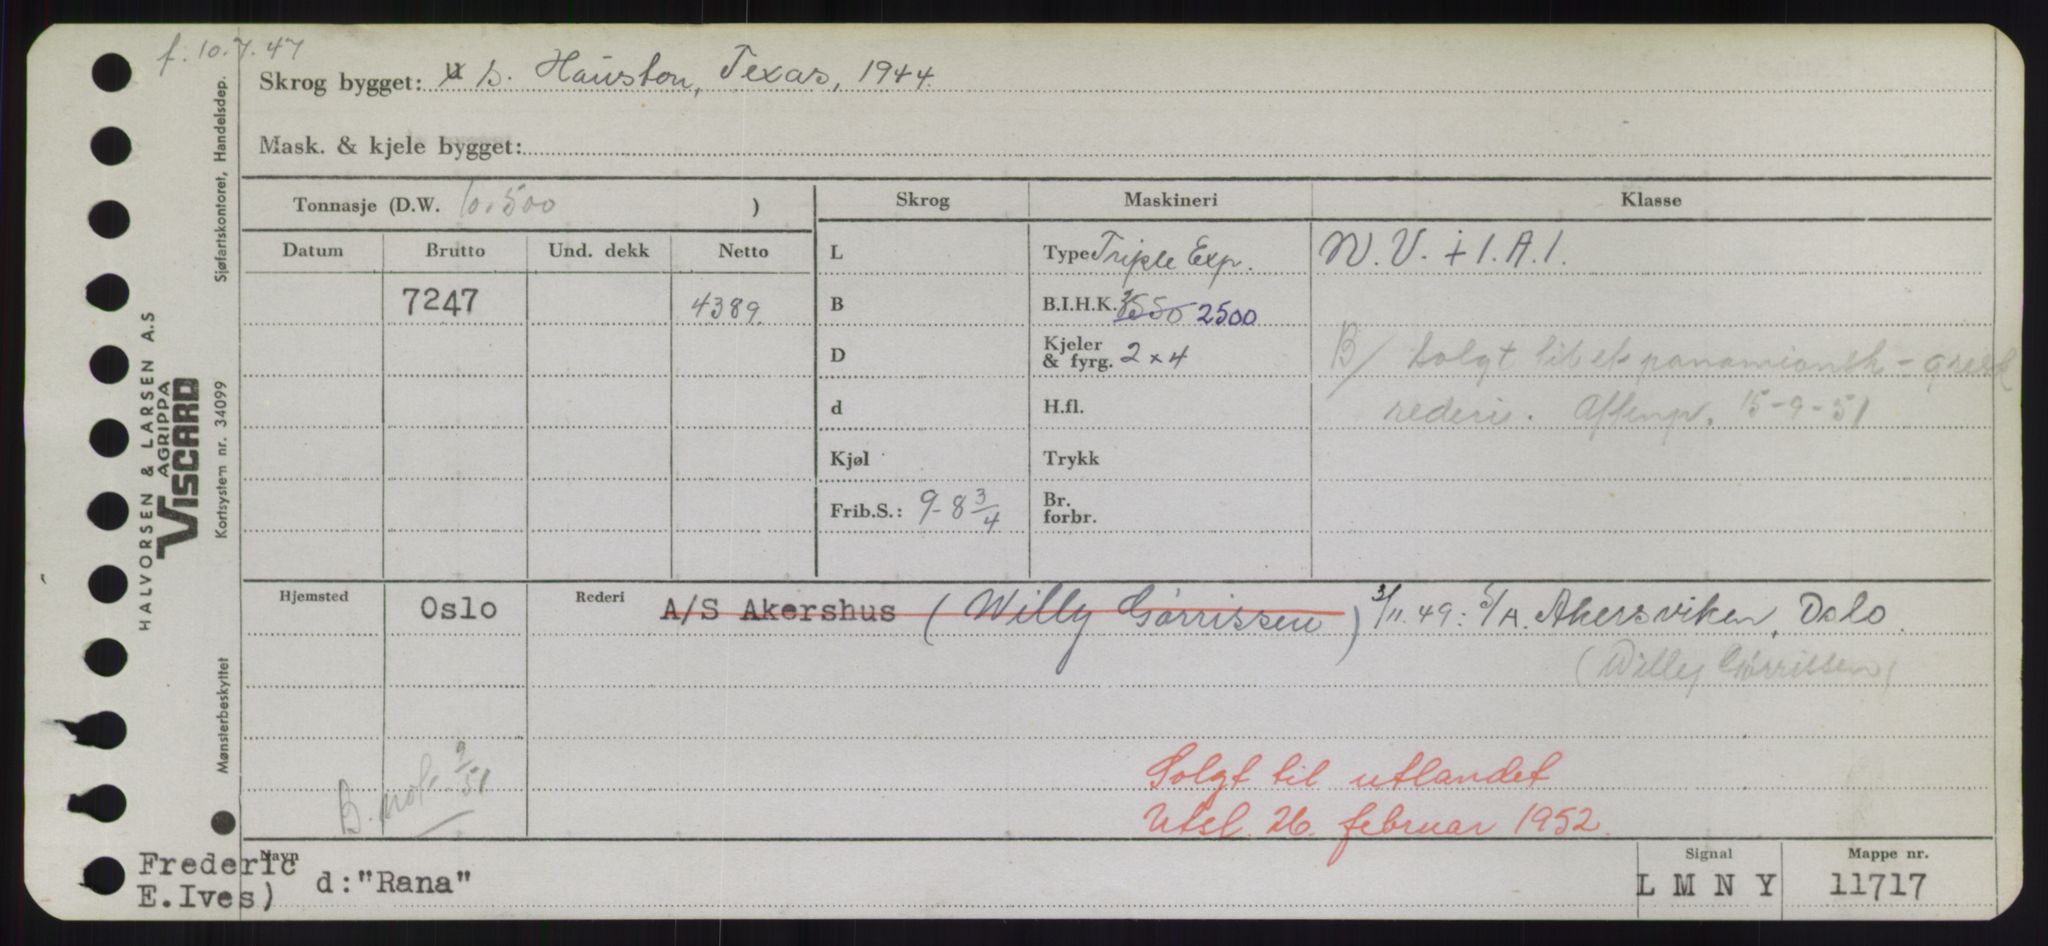 f. 10.7.47
Skrog bygget: Houston, Texas, 1944.
Mask. & kjele bygget:
Tonnasje (D.W. 10.500 )
Skrog Maskineri Klasse
Datum Brutto Und. dekk Netto
L Type Triple Exp. N.V. + 1.A.1.
7247 4389 B B.I.H.K. 2500
D Kjeler & fyrg. 2 x 4 B/ Solgt til et panamiansk - gresk
d H.fl. rederi. Aftenp. 15-9-51
Kjøl Trykk
Frib.S.: 9-8 3/4 Br. forbr.
Hjemsted Oslo Rederi A/S Akershus (Willy Gørrissen) 3/11.49: S/A. Akersviken, Oslo.
(Willy Gørrissen)
B. not. 9/51
Solgt til utlandet
Utsl. 26. februar 1952.
Navn Signal Mappe nr.
Frederic
E.Ives) d:"Rana" L M N Y 11717
HALVORSEN & LARSEN A.S
AGRIPPA
VISCARD
Mønsterbeskyttet Kortsystem nr. 34099 Sjøfartskontoret, Handelsdep.